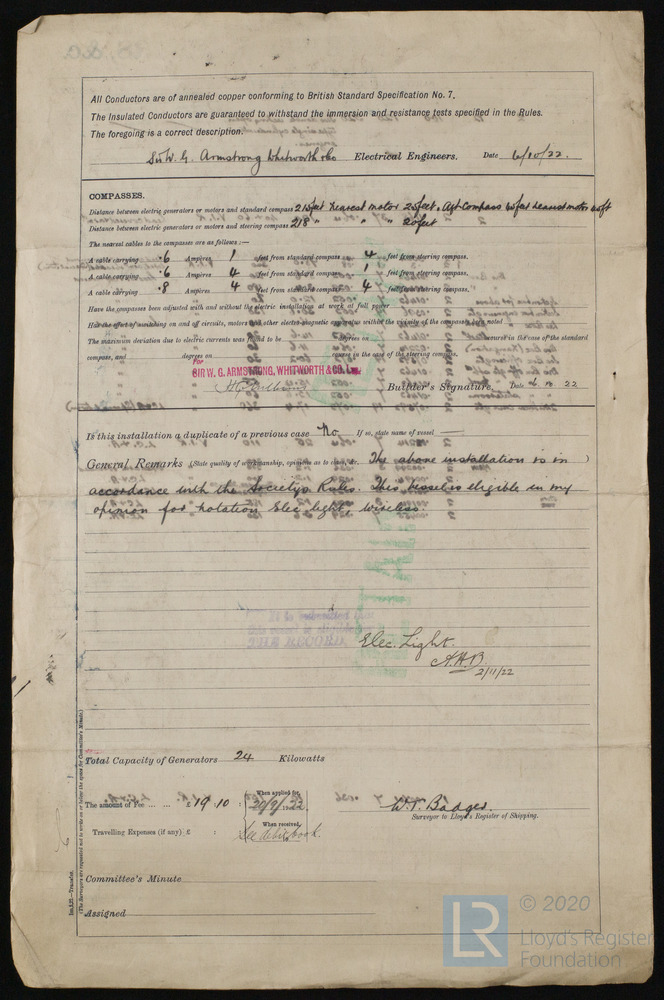 All Conductors are of annealed copper conforming to British Standard Specification No. 7.
The Insulated Conductors are guaranteed to withstand the immersion and resistance tests specified in the Rules.
The foregoing is a correct description.
Sir W. G. Armstrong Whitworth & Co Electrical Engineers. Date 6/10/22.
COMPASSES.
Distance between electric generators or motors and standard compass 215 feet nearest motor 25 feet. Aft Compass 65 feet nearest motor
Distance between electric generators or motors and steering compass 218 " " " 20 feet
The nearest cables to the compasses are as follows:—
A cable carrying ·6 Ampères 1 feet from standard compass 4 feet from steering compass.
A cable carrying ·6 Ampères 4 feet from standard compass 1 feet from steering compass.
A cable carrying ·8 Ampères 4 feet from standard compass 4 feet from steering compass.
Have the compasses been adjusted with and without the electric installation at work at full power
Has the effect of switching on and off circuits, motors and other electro-magnetic apparatus within the vicinity of the compasses been noted
The maximum deviation due to electric currents was found to be degrees on course in the case of the standard
compass, and degrees on course in the case of the steering compass.
For
SIR W. G. ARMSTRONG, WHITWORTH & CO. LTD
Builder's Signature. Date 6. 10. 22
Is this installation a duplicate of a previous case No If so, state name of vessel
General Remarks (State quality of workmanship, opinions as to class, &c. The above installation is in )
accordance with the Society's Rules. This vessel is eligible in my
opinion for notation Elec light, wireless.
It is submitted that
this vessel is eligible for
THE RECORD.
Elec. Light.
A.H.B.
2/11/22
Total Capacity of Generators 24 Kilowatts
The amount of Fee ... ... £ 19 : 10 : When applied for, 20/9/1922
W. T. Badger
Surveyor to Lloyd's Register of Shipping.
Travelling Expenses (if any) £ : When received, See debit book.
Committee's Minute
Assigned
(The Surveyors are requested not to write on or below the space for Committee's Minute.)
© 2020
LR
Lloyd's Register
Foundation